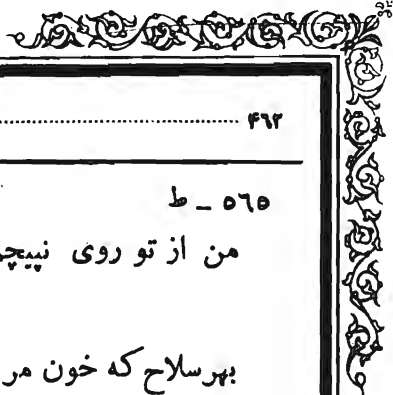 ۴۶۲
۵۶۵ - ط
من از تو روی نپیچم
بهر سلاح که خون مر